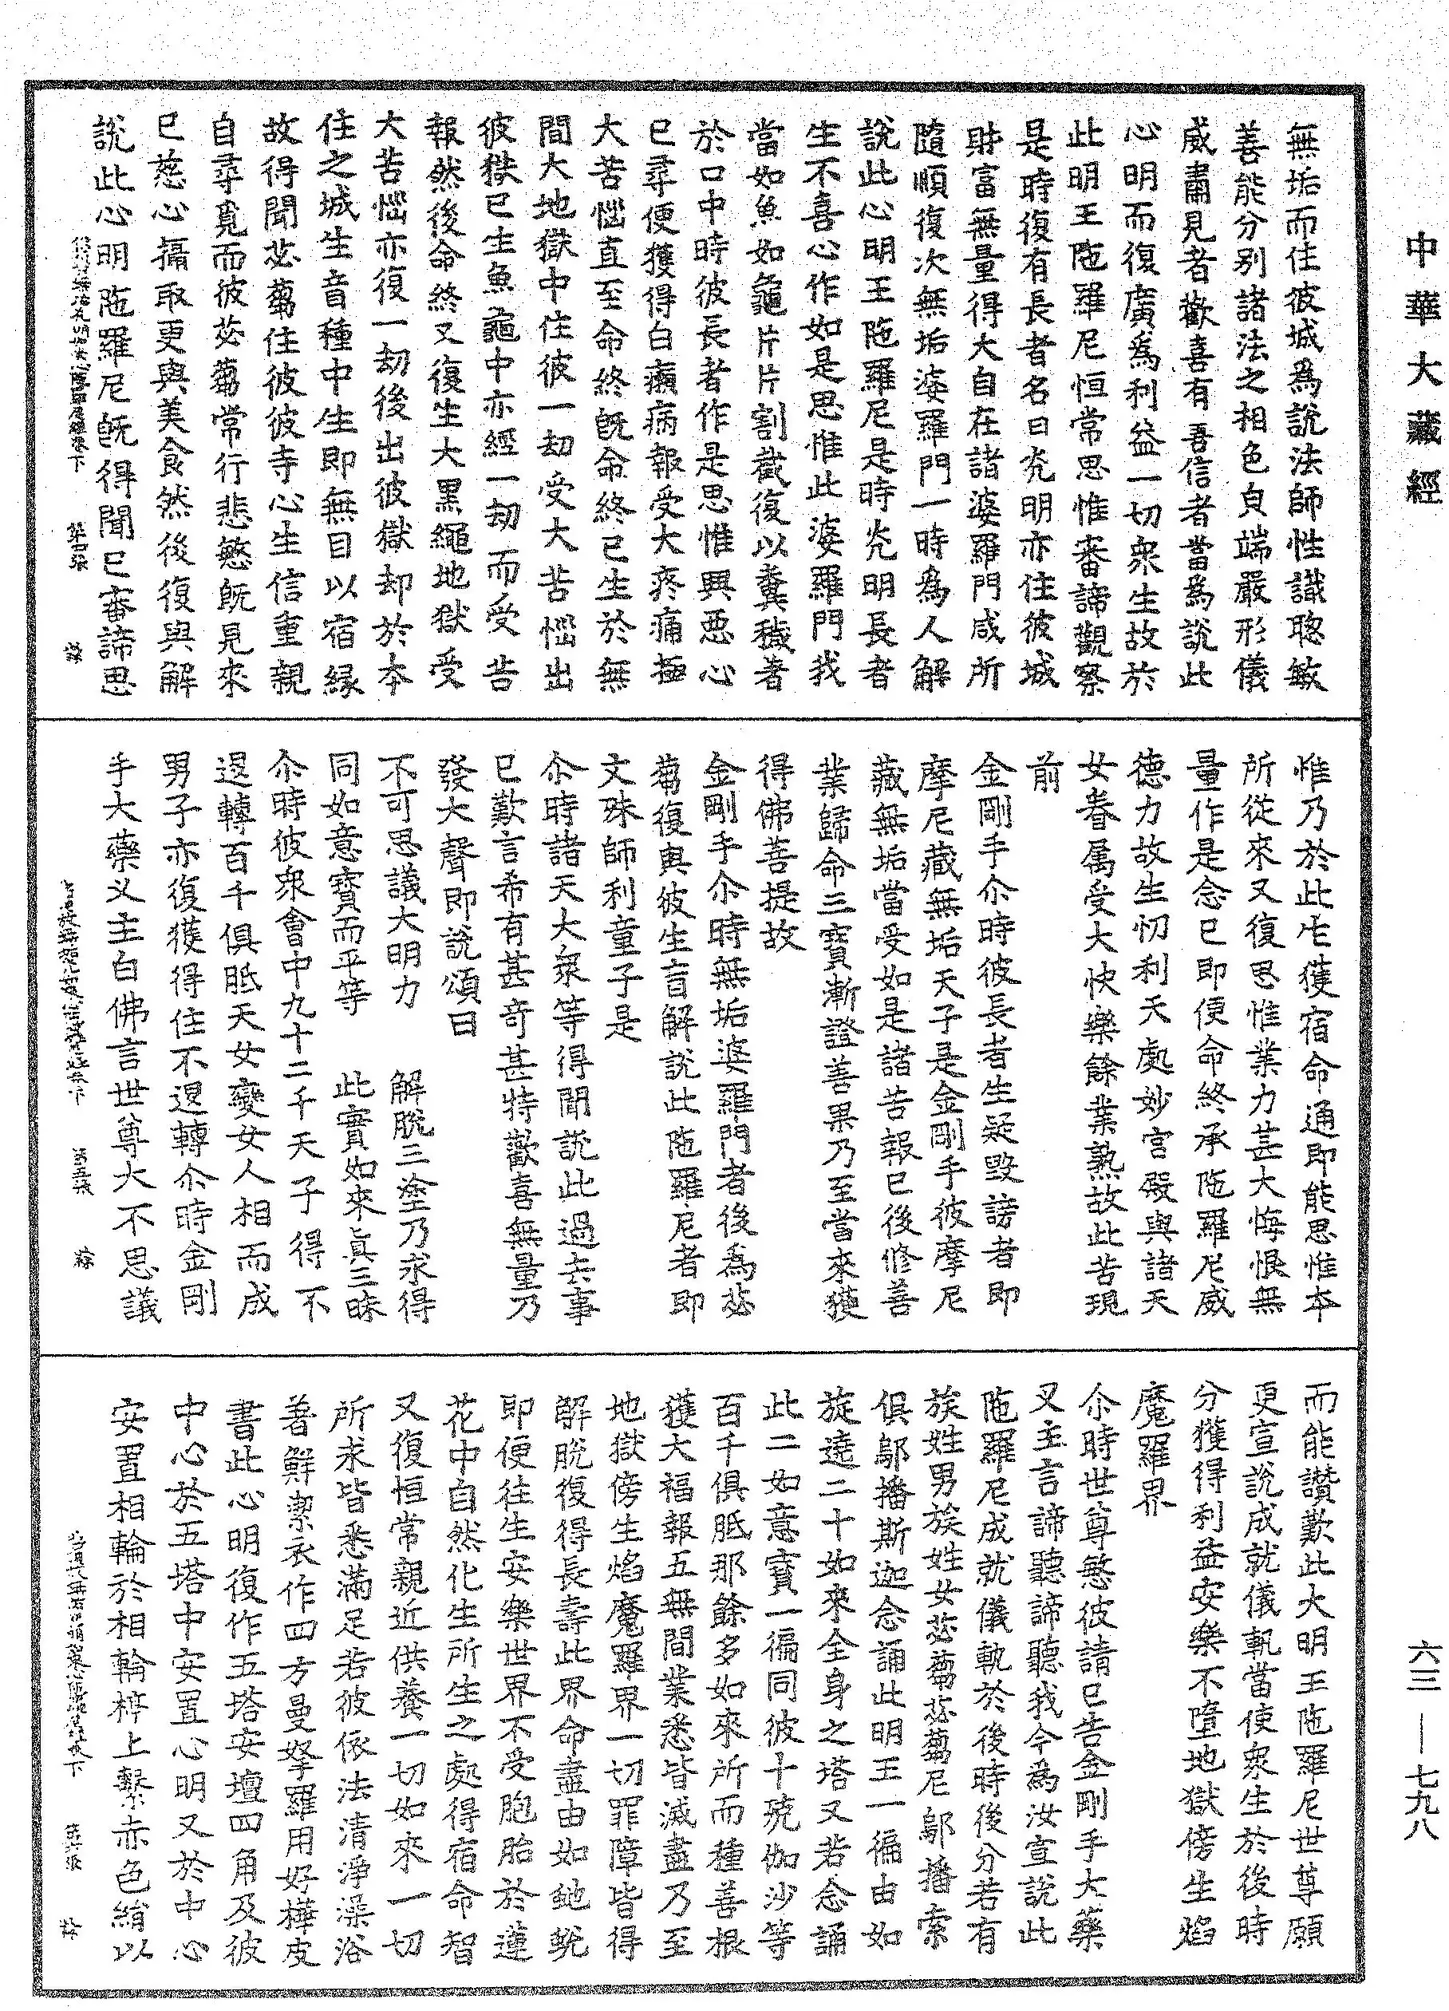 中華大藏經
無垢而住彼城為說法師性識聰敏
善能分別諸法之相色皃端嚴形儀
威肅見者歡喜有吾信者當為說此
心明而復廣為利益一切衆生故於
此明王陁羅尼恒常思惟審諦觀察
是時復有長者名曰光明亦住彼城
財富無量得大自在諸婆羅門咸所
隨順復次無垢婆羅門一時為人解
說此心明王陁羅尼是時光明長者
生不喜心作如是思惟此婆羅門我
當如魚如龜片片割截復以糞穢著
於口中時彼長者作是思惟興惡心
已尋便獲得白癩病報受大疼痛極
大苦惱直至命終既命終已生於無
間大地獄中住彼一劫受大苦惱出
彼獄已生魚龜中亦經一劫而受告
報然後命終又復生大黑繩地獄受
大苦惱亦復一劫後出彼獄却於本
住之城生盲種中生即無目以宿緣
故得聞苾蒭住彼彼寺心生信重親
自尋覓而彼苾蒭常行悲愍既見來
已慈心攝取更與美食然後復與解
說此心明陁羅尼既得聞已審諦思
第四張
惟乃於此生獲宿命通即能思惟本
所從來又復思惟業力甚大悔恨無
量作是念已即便命終承陁羅尼威
德力故生忉利天處妙宫殿與諸天
女眷属受大快樂餘業熟故此苦現
前
金剛手尒時彼長者生疑毀謗者即
摩尼藏無垢天子是金剛手彼摩尼
藏無垢當受如是諸苦報已後修善
業歸命三寶漸證善果乃至當來獲
得佛菩提故
金剛手尒時無垢婆羅門者後為苾
蒭復與彼生盲解說此陁羅尼者即
文殊師利童子是
尒時諸天大衆等得聞說此過去事
已歎言希有甚奇甚特歡喜無量乃
發大聲即說頌曰
不可思議大明力　解脫三塗乃求得
同如意寶而平等　此實如來真三昧
尒時彼衆會中九十二千天子得不
退轉百千俱胝天女變女人相而成
男子亦復獲得住不退轉尒時金剛
手大藥叉主白佛言世尊大不思議
第五張
而能讃歎此大明王陁羅尼世尊願
更宣說成就儀軌當使衆生於後時
分獲得利益安樂不墮地獄傍生焰
魔羅界
尒時世尊愍彼請已告金剛手大藥
叉主言諦聽諦聽我今為汝宣說此
陁羅尼成就儀軌於後時後分若有
族姓男族姓女苾蒭苾蒭尼鄔播索
俱鄔播斯迦念誦此明王一徧由如
旋遶二十如來全身之塔又若念誦
此二如意寶一徧同彼十殑伽沙等
百千俱胝那餘多如來所而種善根
獲大福報五無間業悉皆滅盡乃至
地獄傍生焰魔羅界一切罪障皆得
解脫復得長壽此界命盡由如虵蛻
即便往生安樂世界不受胞胎於蓮
花中自然化生所生之處得宿命智
又復恒常親近供養一切如來一切
所求皆悉滿足若彼依法清淨澡浴
著鮮潔衣作四方曼拏羅用好樺皮
書此心明復作五塔安壇四角及彼
中心於五塔中安置心明又於中心
安置相輪於相輪㯝上繫赤色綃以
第六張
六三——七九八